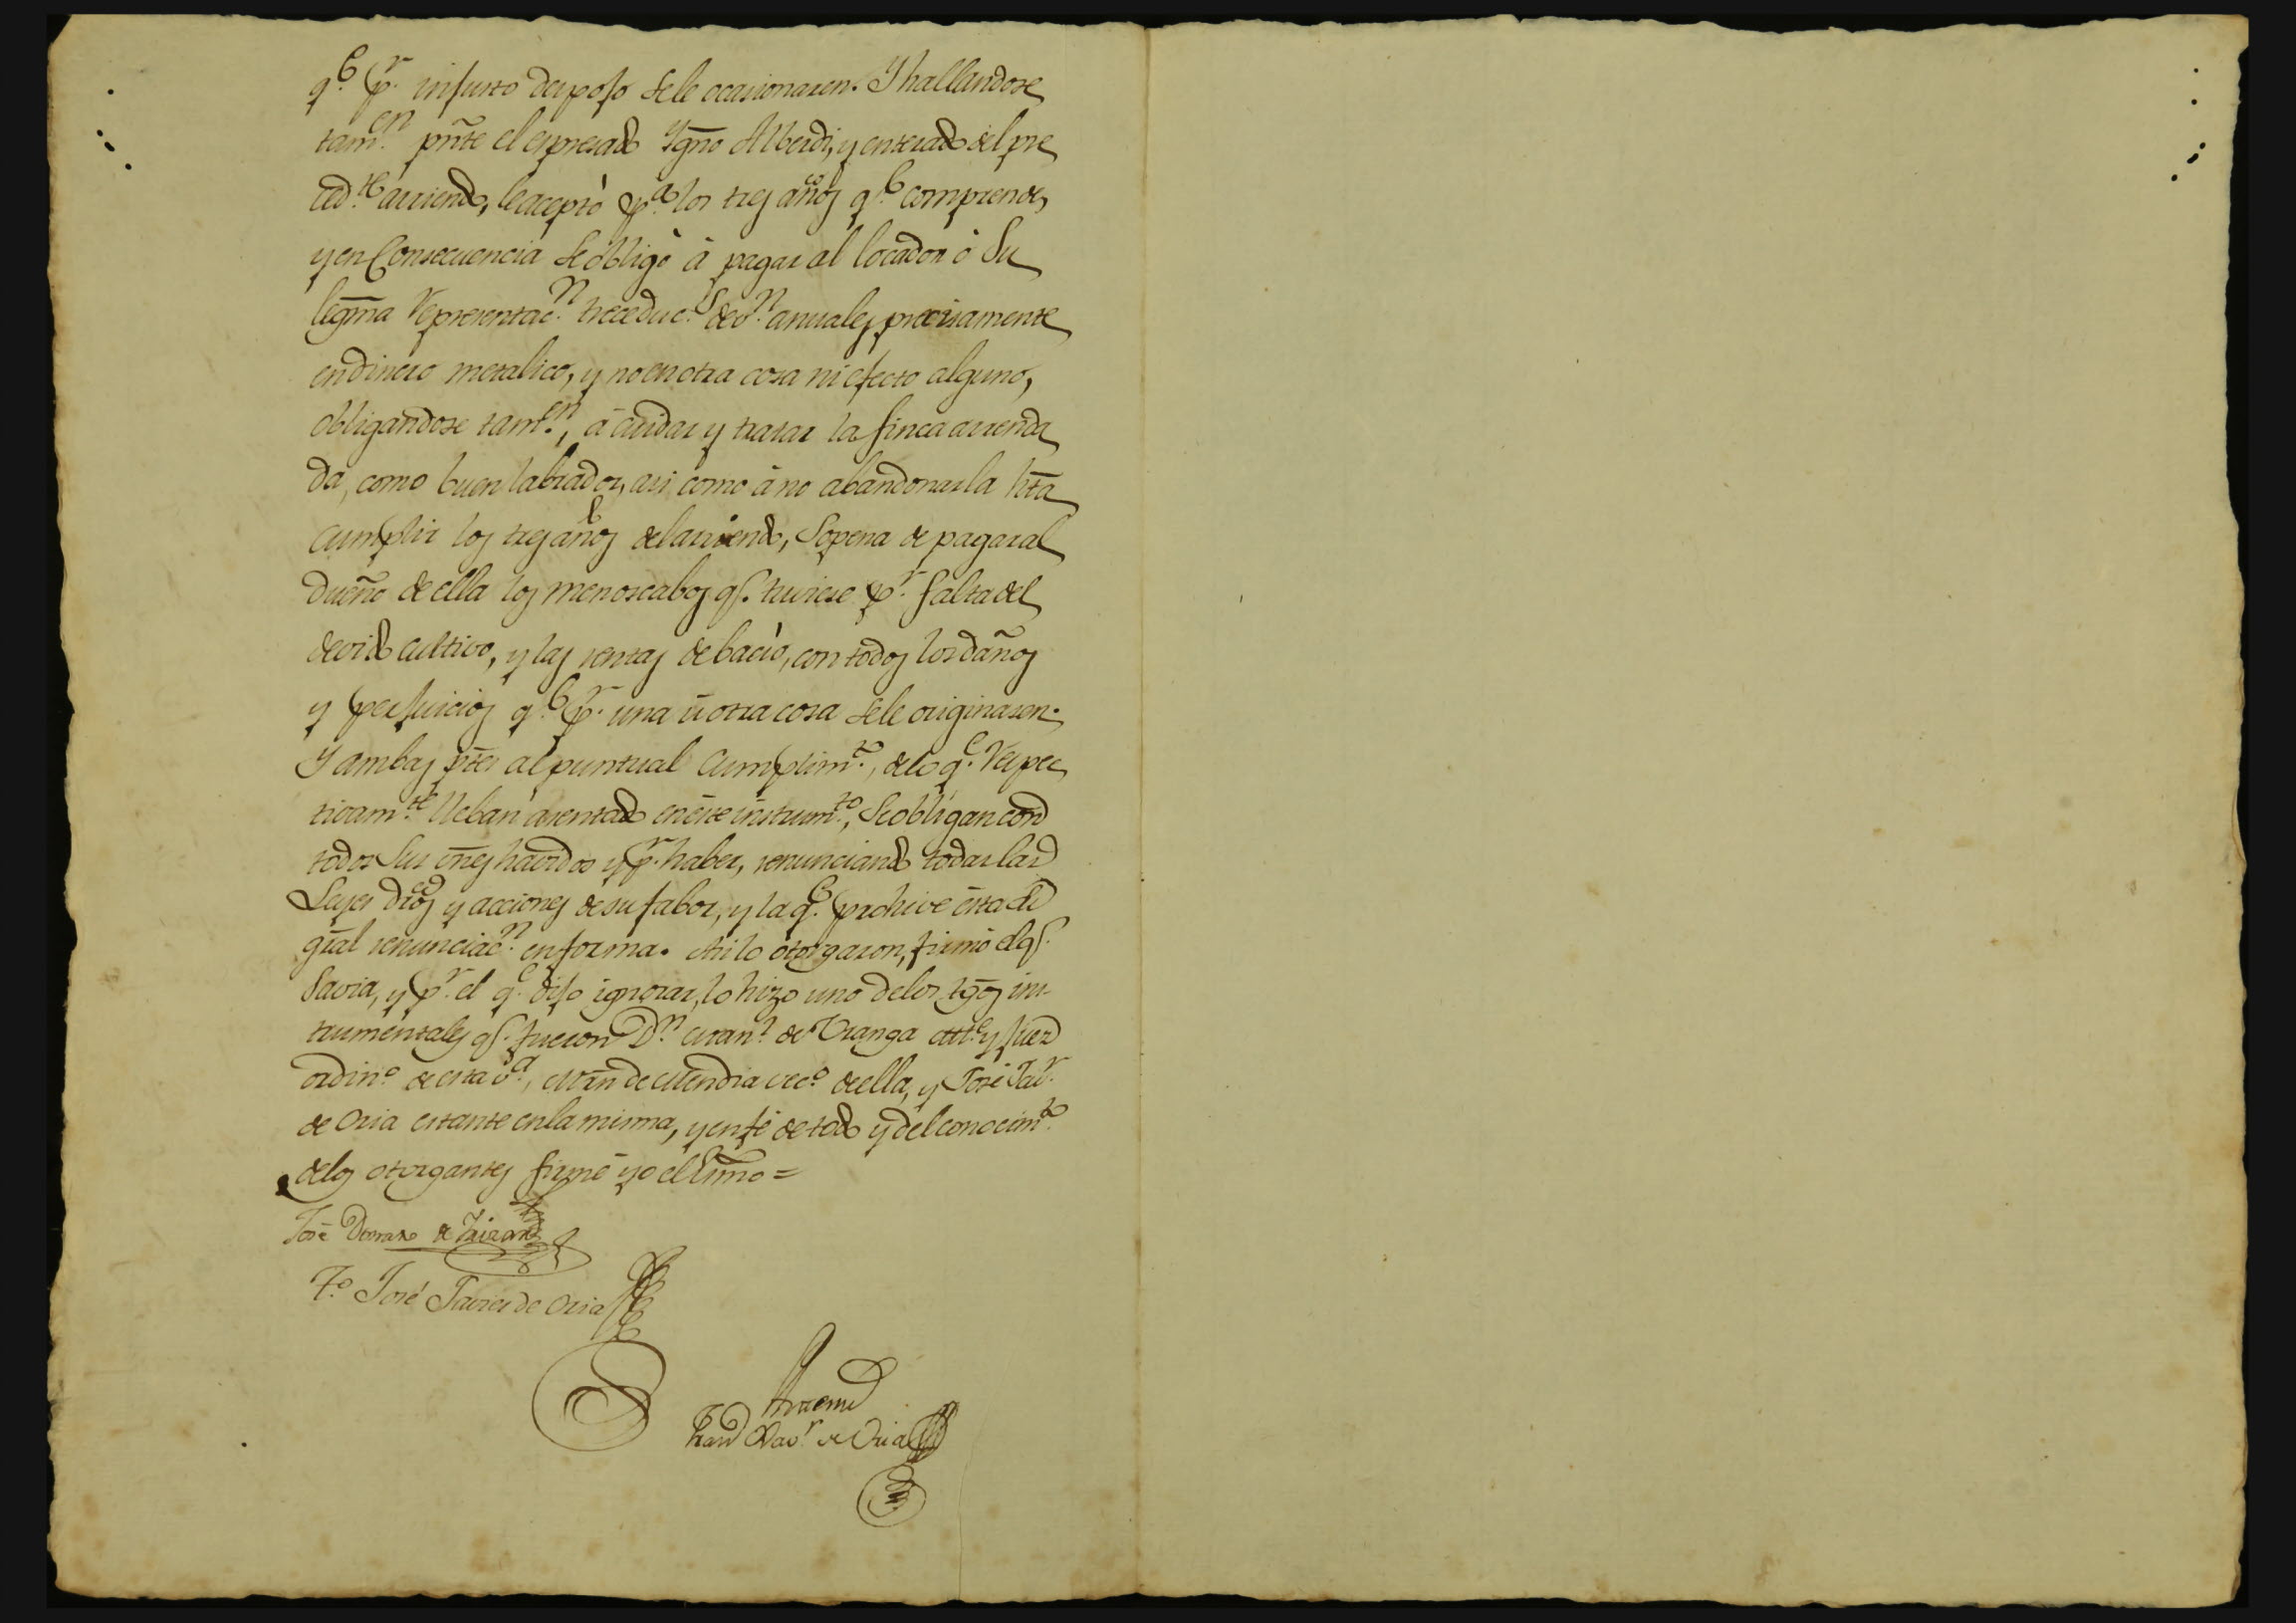 q.e p.r injusto despojo sele ocasionaren. Y hallandose
tam.en pnte el espresado Ygnº Alberdi, y enterado del pre
ced.te arriendo, le aceptó p.a los tres años q.e comprende,
y en Consecuencia se obligó á pagar al locador ó Su
legma Representac.n trece duc.s de v.n anuales precisamente
en dinero metalico, y no en otra cosa ni efecto alguno,
obligandose tamb.en, á cuidar y tratar la finca arrenda
da, como buen labrador, asi como á no abandonarla hta
cumplir los tres años del arriendo, Sopena de pagar al
Dueño de ella los menoscabos q.e tuviese p.r falta del
devido cultivo, y las rentas de bacio, con todos los daños
y perjuicios q.e p.r una ú otra cosa sele originaren.
Y ambas ptes al puntual cumplim.to, delo q.e respec
tivam.te lleban asentado en éste instrum.to, se obligan con
todos sus vnes havidos y p.r haber, renunciando todas las
Leyes dros y acciones de su fabor, y la q.e prohive ésta
gral renunciac.n en forma. Asi lo otorgaron, firmó el q.e
Savia, y p.r el q.e dijo ignorar, lo hizo uno delos tgos ins
trumentales q.e fueron D.n de Uranga Alc.e y Juez
ordin.o de esta v.a, de Mendia vec.o de ella, y José Jav.r
de Oria estante en la misma, y en fé de todo y del conocim.to
delos otorgantes firmé yo el Esnno =
José Domingo de
T.o José Javier de Oria
Antemi
Fran Xav.r de Oria